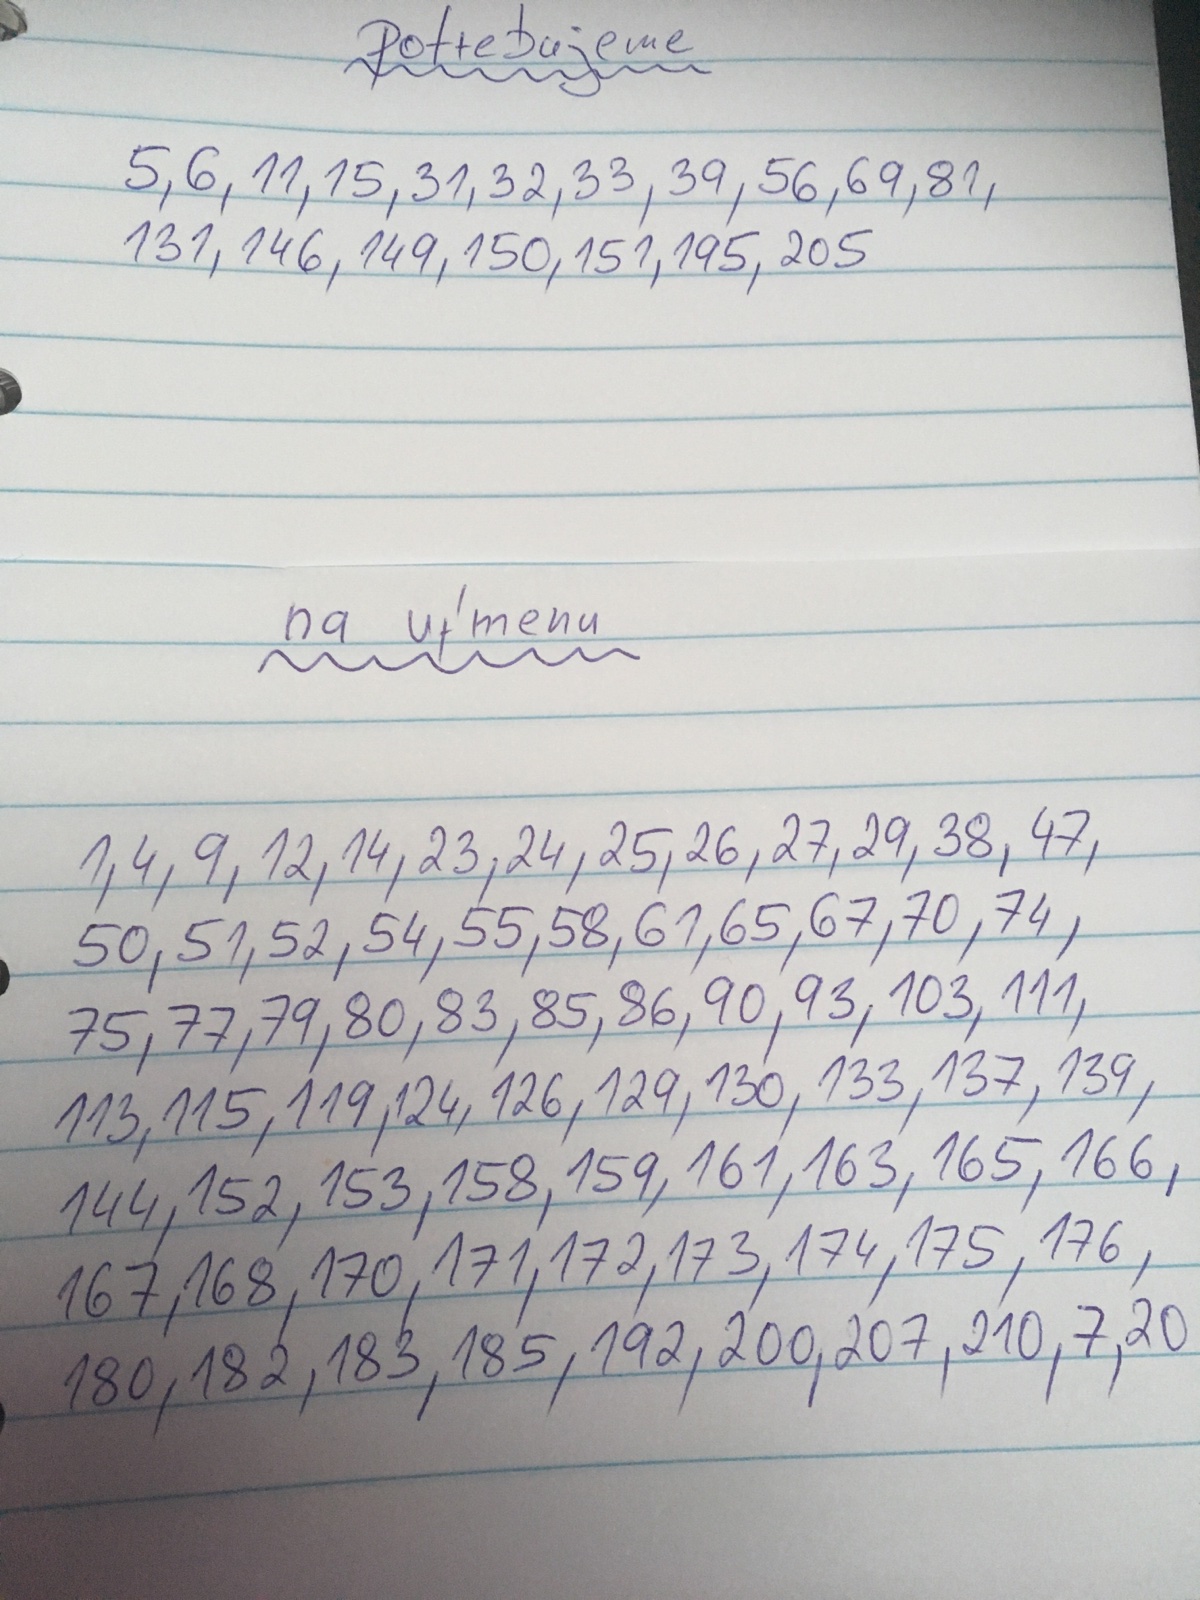 Potrebujeme
5, 6, 11, 15, 31, 32, 33, 39, 56, 69, 81,
131, 146, 149, 150, 151, 195, 205
na výmenu
1, 4, 9, 12, 14, 23, 24, 25, 26, 27, 29, 38, 47,
50, 51, 52, 54, 55, 58, 61, 65, 67, 70, 74,
75, 77, 79, 80, 83, 85, 86, 90, 93, 103, 111,
113, 115, 119, 124, 126, 129, 130, 133, 137, 139,
144, 152, 153, 158, 159, 161, 163, 165, 166,
167, 168, 170, 171, 172, 173, 174, 175, 176,
180, 182, 183, 185, 192, 200, 207, 210, 7, 20